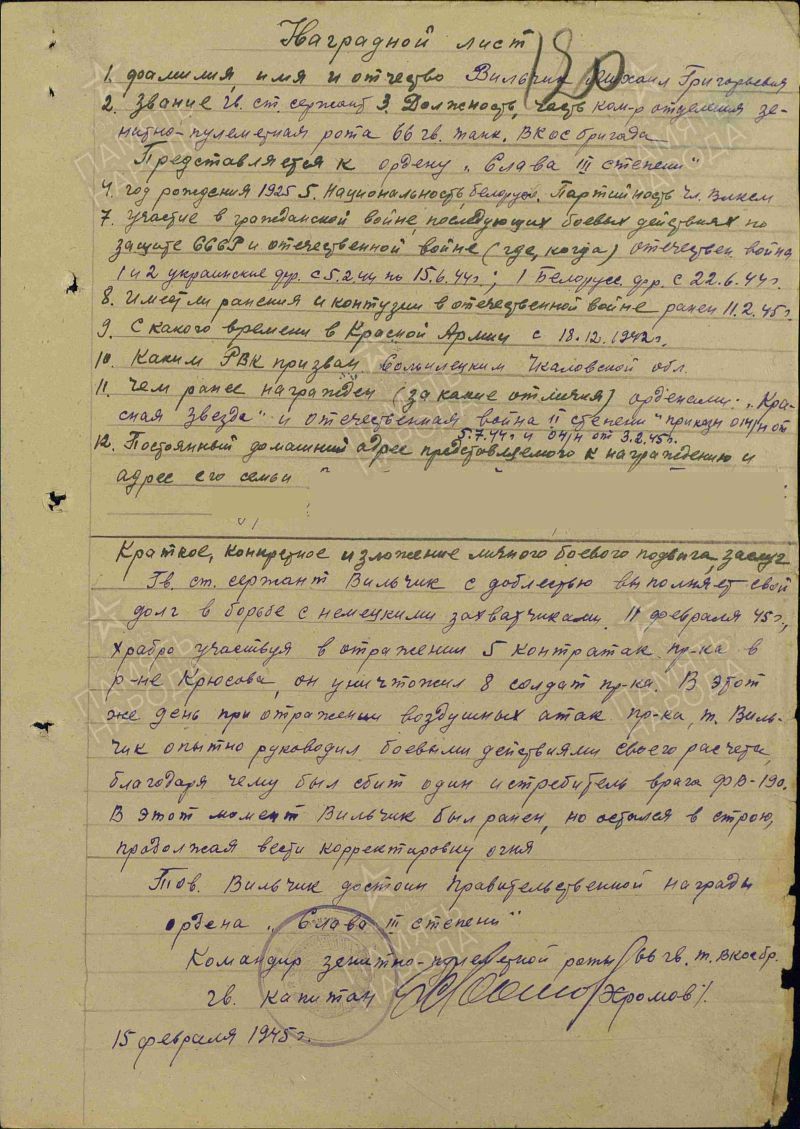 Наградной лист
120
1. фамилия, имя и отчество Вильчик Михаил Григорьевич
2. Звание гв. ст сержант 3. Должность, часть ком-р отделения зе-
нитно-пулеметная рота 66 гв. танк. ВКос бригада
Представляется к ордену „Слава III степени"
4. год рождения 1925 5. Национальность, белорус. Партийность чл. Влксм
7. Участие в гражданской войне, последующих боевых действиях по
защите СССР и отечественной войне (где, когда) отечествен. война
1 и 2 украинские фр. с 5.2.44 по 15.6.44г; 1 Белорусс. фр. с 22.6.44г.
8. Имеет ли ранения и контузии в отечественной войне ранен 11.2.45г.
9. С какого времени в Красной Армии с 18.12.1942г.
10. Каким РВК призван Сольилецким Чкаловской обл.
11. Чем ранее награжден (за какие отличия) орденами: „Кра-
сная Звезда" и отечественная война II степени" приказы от
5.7.44г и от 3.2.45г.
12. Постоянный домашний адрес представляемого к награждению и
адрес его семьи
Краткое, конкретное изложение личного боевого подвига, заслуг
Гв. ст. сержант Вильчик с доблестью выполняет свой
долг в борьбе с немецкими захватчиками. 11 февраля 45г.,
храбро участвуя в отражении 5 контратак пр-ка в
р-не Крюсова, он уничтожил 8 солдат пр-ка. В этот
же день при отражении воздушных атак пр-ка, т. Виль-
чик опытно руководил боевыми действиями своего расчета,
благодаря чему был сбит один истребитель врага ФВ-190.
В этот момент Вильчик был ранен, но остался в строю,
продолжая вести корректировку огня
Тов. Вильчик достоин Правительственной награды
ордена „Слава III степени"
Командир зенитно-пулеметной роты 66 гв. т. ВКосбр.
гв. капитан /Хромов/.
15 февраля 1945г.
ПАМЯТЬ НАРОДА